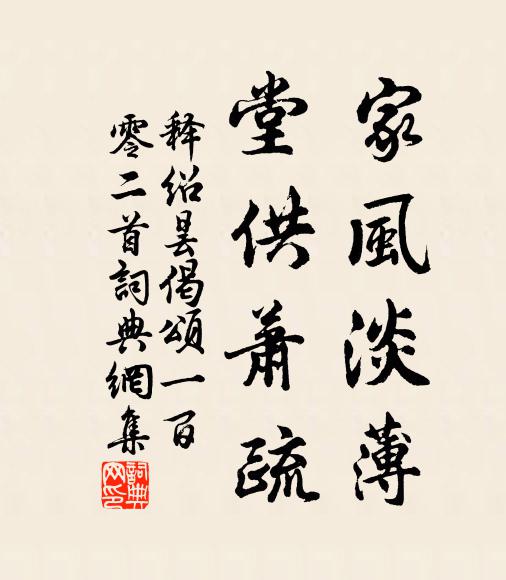 家風淡薄
堂供蕭疏
释绍昙偈頌一百
零二首詞典網集
詞典网印